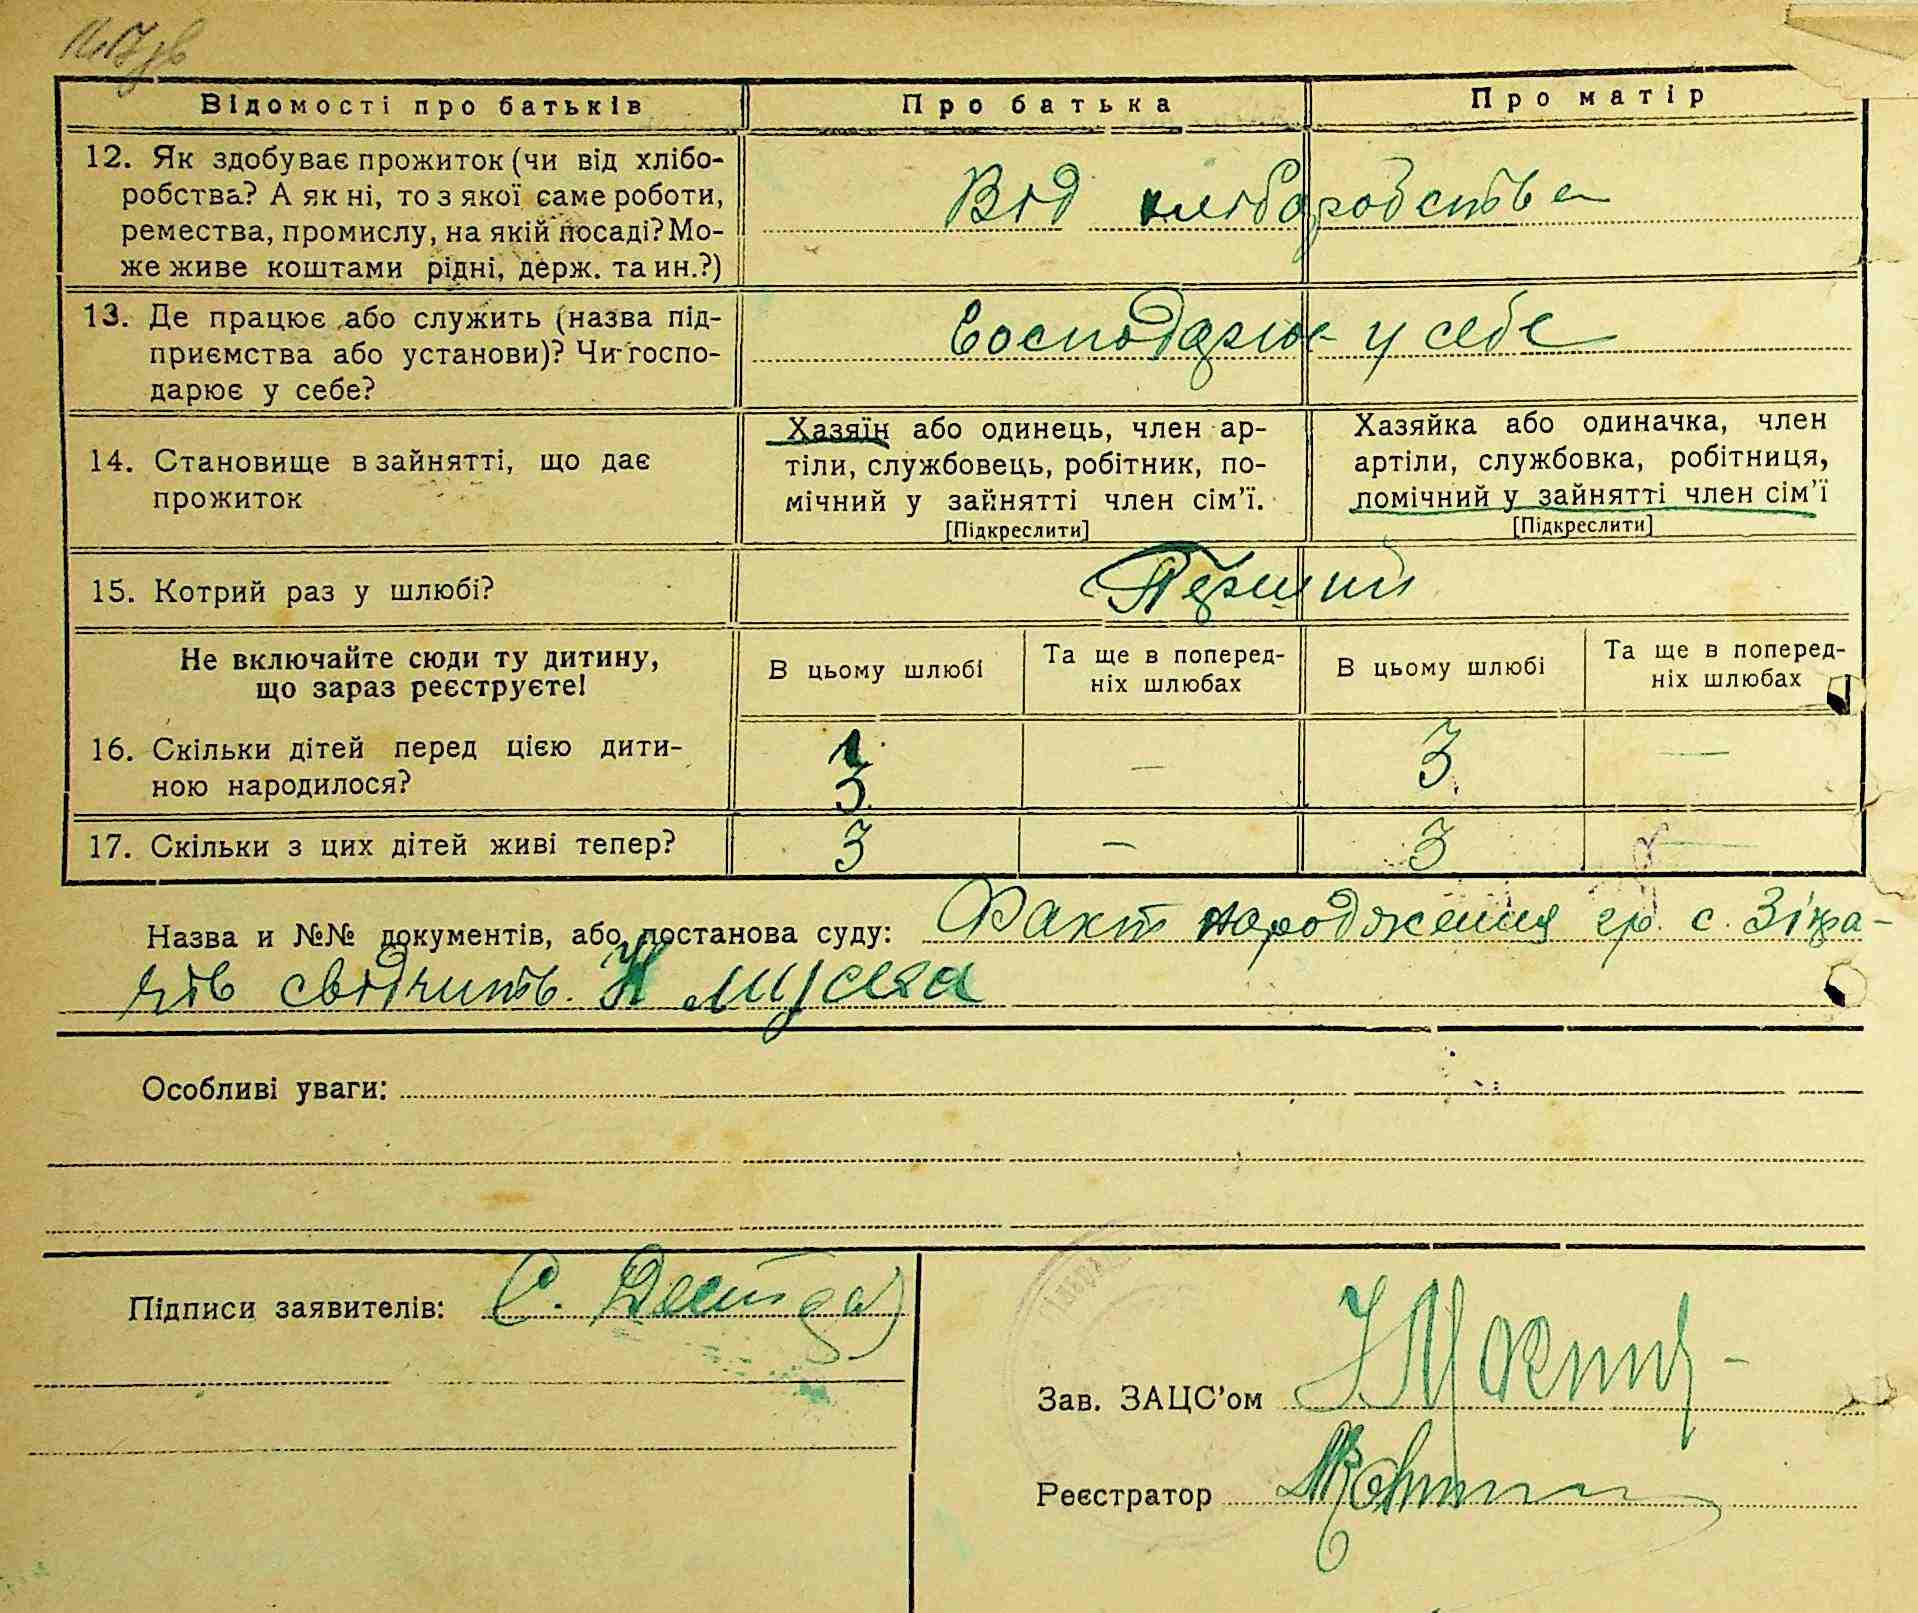 Відомості про батьків
Про батька
Про матір
12. Як здобуває прожиток (чи від хлібо-
робства? А як ні, то з якої саме роботи,
ремества, промислу, на якій посаді? Мо-
же живе коштами рідні, держ. та ин.?)
Від хліборобства
13. Де працює або служить (назва під-
приємства або установи)? Чи госпо-
дарює у себе?
Господарює у себе
14. Становище в зайнятті, що дає
прожиток
Хазяїн або одинець, член ар-
тіли, службовець, робітник, по-
мічний у зайнятті член сім'ї.
[Підкреслити]
Хазяйка або одиначка, член
артіли, службовка, робітниця,
помічний у зайнятті член сім'ї
[Підкреслити]
15. Котрий раз у шлюбі?
Перший
Не включайте сюди ту дитину,
що зараз реєструєте!
В цьому шлюбі
Та ще в поперед-
ніх шлюбах
В цьому шлюбі
Та ще в поперед-
ніх шлюбах
16. Скільки дітей перед цією дити-
ною народилося?
3 — 3 —
17. Скільки з цих дітей живі тепер?
3 — 3 —
Назва и №№ документів, або постанова суду: Факт народження гр. с.
свідчить
Особливі уваги:
Підписи заявителів: С.
Зав. ЗАЦС'ом
Реєстратор